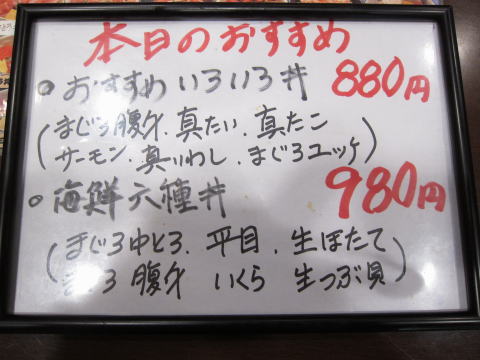 本日のおすすめ
。おすすめいろいろ丼 880円
(まぐろ腹身.真たい.真たこ
サーモン.真いわし.まぐろユッケ)
。海鮮六種丼 980円
(まぐろ中とろ.平目.生ほたて
ろ腹身 いくら 生つぶ貝)